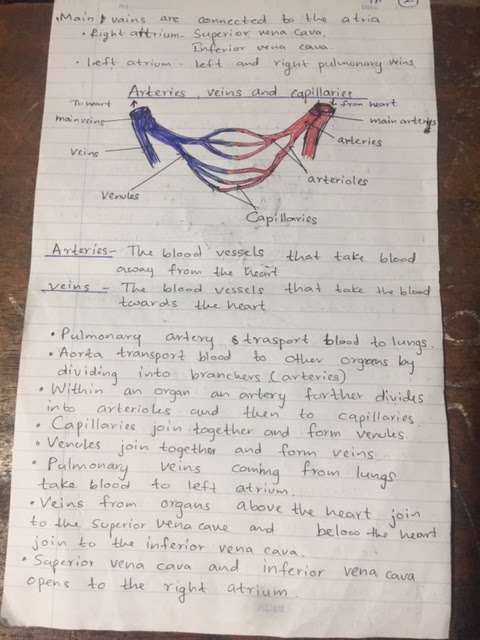 • Main vains are connected to the atria
• Right attrium - Superior vena cava,
Inferior vena cava.
• Left atrium - left and right pulmonary veins.
Arteries, veins and capillaries
To heart
from heart
main veins
main arteries
arteries
veins
arterioles
Venules
Capillaries
Arteries - The blood vessels that take blood
away from the heart
veins - The blood vessels that take the blood
towards the heart
• Pulmonary artery trasport blood to lungs.
• Aorta transport blood to other orgrans by
dividing into branchers (arteries)
• Within an organ an artery further divides
into arterioles and then to capillaries.
• Capillaries join together and form venules.
• Venules join together and form veins
• Pulmonary veins coming from lungs
take blood to left atrium.
• Veins from organs above the heart join
to the superior vena cave and below the heart
join to the inferior vena cava.
• Superior vena cava and inferior vena cava
opens to the right atrium.